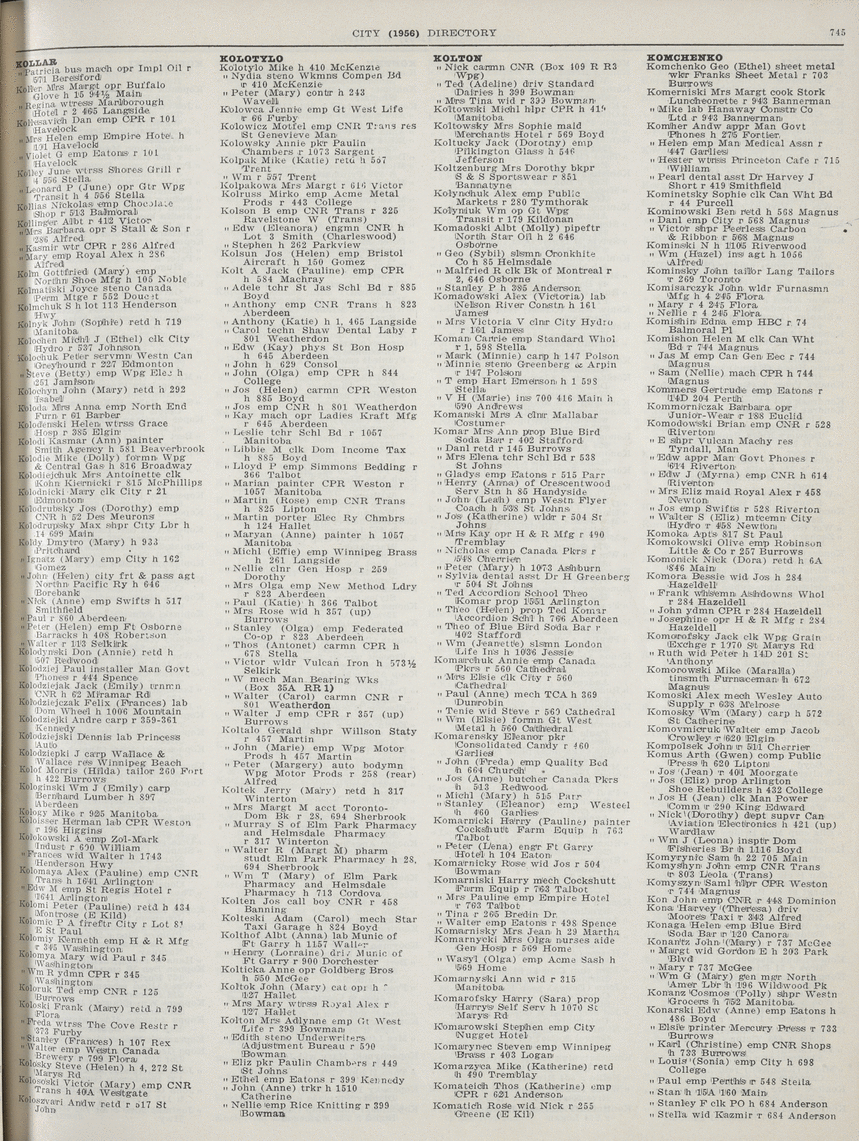 CITY (1956) DIRECTORY
745
KOLLAR
" Patricia bus mach opr Impl Oil r
571 Beresford
Koller Mrs Margt opr Buffalo
Glove h 15 94½ Main
" Regina wtress Marlborough
Hotel r 2 465 Langside
Kollesavich Dan emp CPR r 101
Havelock
" Mrs Helen emp Empire Hotel h
101 Havelock
" Violet G emp Eatons r 101
Havelock
Kolley June wtress Shores Grill r
4 556 Stella
" Leonard P (June) opr Gtr Wpg
Transit h 4 556 Stella
Kollias Nickolas emp Chocolate
Shop r 513 Balmoral
Kollinger Albt r 412 Victor
" Mrs Barbara opr S Stall & Son r
286 Alfred
" Kasmir wtr CPR r 286 Alfred
" Mary emp Royal Alex h 286
Alfred
Kolm Gottfried (Mary) emp
Northn Shoe Mfg h 105 Noble
Kolmatiski Joyce steno Canada
Perm Mtge r 552 Doucet
Kolmchuk S h lot 113 Henderson
Hwy
Kolnyk John (Sophie) retd h 719
Manitoba
Kolochen Michl J (Ethel) clk City
Hydro r 537 Johnson
Kolochuk Peter servmn Westn Can
Greyhound r 227 Edmonton
" Steve (Betty) emp Wpg Elec h
251 Jamison
Kolochyn John (Mary) retd h 292
Isabel
Koloda Mrs Anna emp North End
Furn r 61 Barber
Kolodenski Helen wtress Grace
Hosp r 385 Elgin
Kolodi Kasmar (Ann) painter
Smith Agency h 581 Beaverbrook
Kolodie Mike (Dolly) formn Wpg
& Central Gas h 816 Broadway
Kolodiejchuk Mrs Antoinette clk
John Kiernicki r 815 McPhillips
Kolodnicki Mary clk City r 21
Edmonton
Kolodrubsky Jos (Dorothy) emp
CNR h 52 Des Meurons
Kolodrupsky Max shpr City Lbr h
14 699 Main
Kolody Dmytro (Mary) h 933
Pritchard
" Ignatz (Mary) emp City h 162
Gomez
" John (Helen) city frt & pass agt
Northn Pacific Ry h 646
Borebank
" Nick (Anne) emp Swifts h 517
Smithfield
" Paul r 860 Aberdeen
" Peter (Helen) emp Ft Osborne
Barracks h 408 Robertson
" Walter r 1113 Selkirk
Kolodynski Don (Annie) retd h
507 Redwood
Kolodziej Paul installer Man Govt
Phones r 444 Spence
Kolodziejak Jack (Emily) trnmn
CNR h 62 Miramar Rd
Kolodziejczak Felix (Frances) lab
Dom Wheel h 1006 Mountain
Kolodziejki Andre carp r 359-361
Kennedy
Kolodziejski Dennis lab Princess
Auto
Kolodziepki J carp Wallace &
Wallace res Winnipeg Beach
Kolof Morris (Hilda) tailor 260 Fort
h 422 Burrows
Kologinski Wm J (Emily) carp
Bernhard Lumber h 897
Aberdeen
Kology Mike r 925 Manitoba
Koloisser Herman lab CPR Weston
r 196 Higgins
Kolokowski A emp Zol-Mark
Indust r 690 William
" Frances wid Walter h 1743
Henderson Hwy
Kolomaya Alex (Pauline) emp CNR
Trans h 1641 Arlington
" Edw M emp St Regis Hotel r
1641 Arlington
Kolomi Peter (Pauline) retd h 434
Montrose (E Kild)
Kolomic P A fireftr City r Lot 81
E St Paul
Kolomiy Kenneth emp H & R Mfg
r 345 Washington
Kolomya Mary wid Paul r 345
Washington
" Wm R ydmn CPR r 345
Washington
Koloruk Ted emp CNR r 125
Burrows
Koloski Frank (Mary) retd h 799
Flora
" Freda wtrss The Cove Restr r
373 Furby
" Stanley (Frances) h 107 Rex
" Walter emp Westn Canada
Brewery r 799 Flora
Kolosky Steve (Helen) h 4, 272 St
Marys Rd
Kolososki Victor (Mary) emp CNR
Trans h 40A Westgate
Koloszvari Andw retd r 517 St
John
KOLOTYLO
Kolotylo Mike h 410 McKenzie
" Nydia steno Wkmns Compen Bd
r 410 McKenzie
" Peter (Mary) contr h 243
Wavell
Kolowca Jennie emp Gt West Life
r 66 Furby
Kolowicz Motfel emp CNR Trans res
St Genevieve Man
Kolowsky Annie pkr Paulin
Chambers r 1073 Sargent
Kolpak Mike (Katie) retd h 557
Trent
" Wm r 557 Trent
Kolpakowa Mrs Margt r 616 Victor
Kolruss Mirko emp Acme Metal
Prods r 443 College
Kolson B emp CNR Trans r 325
Ravelstone W (Trans)
" Edw (Eleanora) engmn CNR h
Lot 3 Smith (Charleswood)
" Stephen h 262 Parkview
Kolsun Jos (Helen) emp Bristol
Aircraft h 150 Gomez
Kolt A Jack (Pauline) emp CPR
h 584 Machray
" Adele tchr St Jas Schl Bd r 885
Boyd
" Anthony emp CNR Trans h 823
Aberdeen
" Anthony (Katie) h 1, 465 Langside
" Carol techn Shaw Dental Laby r
801 Weatherdon
" Edw (Kay) phys St Bon Hosp
h 645 Aberdeen
" John h 629 Consol
" John (Olga) emp CPR h 844
College
" Jos (Helen) carmn CPR Weston
h 885 Boyd
" Jos emp CNR h 801 Weatherdon
" Kay mach opr Ladies Kraft Mfg
r 645 Aberdeen
" Leslie tchr Schl Bd r 1057
Manitoba
" Libbie M clk Dom Income Tax
h 885 Boyd
" Lloyd P emp Simmons Bedding r
366 Talbot
" Marian painter CPR Weston r
1057 Manitoba
" Martin (Rose) emp CNR Trans
h 825 Lipton
" Martin porter Elec Ry Chmbrs
h 124 Hallet
" Maryan (Anne) painter h 1057
Manitoba
" Michl (Effie) emp Winnipeg Brass
h 261 Langside
" Nellie clnr Gen Hosp r 259
Dorothy
" Mrs Olga emp New Method Ldry
r 823 Aberdeen
" Paul (Katie) h 366 Talbot
" Mrs Rose wid h 357 (up)
Burrows
" Stanley (Olga) emp Federated
Co-op r 823 Aberdeen
" Thos (Antonet) carmn CPR h
678 Stella
" Victor wldr Vulcan Iron h 573½
Selkirk
" W mech Man Bearing Wks
(Box 35A RR1)
" Walter (Carol) carmn CNR r
801 Weatherdon
" Walter J emp CPR r 357 (up)
Burrows
Koltalo Gerald shpr Willson Staty
r 457 Martin
" John (Marie) emp Wpg Motor
Prods h 457 Martin
" Peter (Margery) auto bodymn
Wpg Motor Prods r 258 (rear)
Alfred
Koltek Jerry (Mary) retd h 317
Winterton
" Mrs Margt M acct Toronto-
Dom Bk r 28, 694 Sherbrook
" Murray S of Elm Park Pharmacy
and Helmsdale Pharmacy
r 317 Winterton
" Walter R (Margt M) pharm
studt Elm Park Pharmacy h 28,
694 Sherbrook
" Wm T (Mary) of Elm Park
Pharmacy and Helmsdale
Pharmacy h 713 Cordova
Kolten Jos call boy CNR r 458
Banning
Kolteski Adam (Carol) mech Star
Taxi Garage h 824 Boyd
Kolthof Albt (Anna) lab Munic of
Ft Garry h 1157 Waller
" Henry (Lorraine) driv Munic of
Ft Garry r 900 Dorchester
Kolticka Anne opr Goldberg Bros
h 550 McGee
Koltok John (Mary) cat opr h
127 Hallet
" Mrs Mary wtrss Royal Alex r
127 Hallet
Kolton Mrs Adlynne emp Gt West
Life r 399 Bowman
" Edith steno Underwriters
Adjustment Bureau r 590
Bowman
" Eliz pkr Paulin Chambers r 449
St Johns
" Ethel emp Eatons r 399 Kennedy
" John (Anne) trkr h 1510
Catherine
" Nellie emp Rice Knitting r 399
Bowman
KOLTON
" Nick carmn CNR (Box 109 R R3
Wpg)
" Ted (Adeline) driv Standard
Dairies h 399 Bowman
" Mrs Tina wid r 399 Bowman
Koltowski Michl hlpr CPR h 415
Manitoba
Koltowsky Mrs Sophie maid
Merchants Hotel r 569 Boyd
Koltucky Jack (Dorothy) emp
Pilkington Glass h 546
Jefferson
Koltzenburg Mrs Dorothy bkpr
S & S Sportswear r 851
Bannatyne
Kolynchuk Alex emp Public
Markets r 280 Tymthorak
Kolyniuk Wm op Gt Wpg
Transit r 179 Kildonan
Komadoski Albt (Molly) pipeftr
North Star Oil h 2 646
Osborne
" Geo (Sybil) slsmn Cronkhite
Co h 85 Helmsdale
" Malfried R clk Bk of Montreal r
2, 646 Osborne
" Stanley P h 385 Anderson
Komadowski Alex (Victoria) lab
Nelson River Constn h 161
James
" Mrs Victoria V clnr City Hydro
r 161 James
Koman Carrie emp Standard Whol
r 1, 598 Stella
" Mark (Minnie) carp h 147 Polson
" Minnie steno Greenberg & Arpin
r 147 Polson
" T emp Hart Emerson h 1 598
Stella
" V H (Marie) ins 700 416 Main h
590 Andrews
Komanski Mrs A clnr Mallabar
Costumer
Komar Mrs Ann prop Blue Bird
Soda Bar r 402 Stafford
" Danl retd r 145 Burrows
" Mrs Elena tchr Schl Bd r 538
St Johns
" Gladys emp Eatons r 515 Parr
" Henry (Anna) of Crescentwood
Serv Stn h 85 Handyside
" John (Leah) emp Westn Flyer
Coach h 538 St Johns
" Jos (Katherine) wldr r 504 St
Johns
" Mrs Kay opr H & R Mfg r 490
Tremblay
" Nicholas emp Canada Pkrs r
548 Cherrier
" Peter (Mary) h 1073 Ashburn
" Sylvia dental asst Dr H Greenberg
r 504 St Johns
" Ted Accordion School Theo
Komar prop 1551 Arlington
" Theo (Helen) prop Ted Komar
Accordion Schl h 766 Aberdeen
" Theo of Blue Bird Soda Bar r
402 Stafford
" Wm (Jeanette) slsmn London
Life Ins h 1036 Jessie
Komarchuk Annie emp Canada
Pkrs r 560 Cathedral
" Mrs Elsie clk City r 560
Cathedral
" Paul (Anne) mech TCA h 369
Dunrobin
" Tenie wid Steve r 569 Cathedral
" Wm (Elsie) formn Gt West
Metal h 560 Cathedral
Komarensky Eleanor pkr
Consolidated Candy r 460
Garlies
" John (Freda) emp Quality Bed
h 664 Church
" Jos (Anne) butcher Canada Pkrs
h 513 Redwood
" Michl (Mary) h 515 Parr
" Stanley (Eleanor) emp Westeel
h 460 Garlies
Komarnicki Harry (Pauline) painter
Cockshutt Farm Equip h 763
Talbot
" Peter (Lena) engr Ft Garry
Hotel h 104 Eaton
Komarnicky Rose wid Jos r 504
Bowman
Komarniski Harry mech Cockshutt
Farm Equip r 763 Talbot
" Mrs Pauline emp Empire Hotel
r 763 Talbot
" Tina r 265 Bredin Dr
" Walter emp Eatons r 498 Spence
Komarnisky Mrs Jean h 29 Martha
Komarnycki Mrs Olga nurses aide
Gen Hosp r 569 Home
" Wasyl (Olga) emp Acme Sash h
569 Home
Komarnyski Ann wid r 315
Manitoba
Komarofsky Harry (Sara) prop
Harrys Self Serv h 1070 St
Marys Rd
Komarowski Stephen emp City
Nugget Hotel
Komarynec Steven emp Winnipeg
Brass r 403 Logan
Komarzya Mike (Katherine) retd
h 490 Tremblay
Komateich Thos (Katherine) emp
CPR r 621 Anderson
Komatich Rose wid Nick r 255
Greene (E Kil)
KOMCHENKO
Komchenko Geo (Ethel) sheet metal
wkr Franks Sheet Metal r 703
Burrows
Komenarski Mrs Margt cook Stork
Luncheonette r 943 Bannerman
" Mike lab Hanaway Constn Co
Ltd r 943 Bannerman
Komher Andw appr Man Govt
Phones h 275 Fortier
" Helen emp Man Medical Assn r
447 Garlies
" Hester wtrss Princeton Cafe r 715
William
" Pearl dental asst Dr Harvey J
Short r 419 Smithfield
Kominetsky Sophie clk Can Wht Bd
r 44 Purcell
Kominowski Ben retd h 568 Magnus
" Danl emp City r 568 Magnus
" Victor shpr Peerless Carbon
& Ribbon r 568 Magnus
Kominski N h 1105 Riverwood
" Wm (Hazel) ins agt h 1056
Alfred
Kominsky John tailor Lang Tailors
r 269 Toronto
Komisarczyk John wldr Furnasmn
Mfg h 4 245 Flora
" Mary r 4 245 Flora
" Nellie r 4 245 Flora
Komishin Edna emp HBC r 74
Balmoral Pl
Komishon Helen M clk Can Wht
Bd r 744 Magnus
" Jas M emp Can Gen Eec r 744
Magnus
" Sam (Nellie) mach CPR h 744
Magnus
Kommers Gertrude emp Eatons r
14D 204 Perth
Kommorniczak Barbara opr
Junior-Wear r 188 Euclid
Komodowski Brian emp CNR r 528
Riverton
" E shpr Vulcan Machy res
Tyndall, Man
" Edw appr Man Govt Phones r
614 Riverton
" Edw J (Myrna) emp CNR h 614
Riverton
" Mrs Eliz maid Royal Alex r 458
Newton
" Jos emp Swifts r 528 Riverton
" Walter S (Eliz) mtcemn City
Hydro r 458 Newton
Komoka Apts 817 St Paul
Komokowski Olive emp Robinson
Little & Co r 257 Burrows
Komonick Nick (Dora) retd h 6A
846 Main
Komora Bessie wid Jos h 284
Hazeldell
" Frank whsemn Ashdowns Whol
r 284 Hazeldell
" John ydmn CPR r 284 Hazeldell
" Josephine opr H & R Mfg r 284
Hazeldell
Komorofsky Jack clk Wpg Grain
Exchge r 1170 St Marys Rd
" Ruth wid Peter h 14D 201 St
Anthony
Komorowski Mike (Maralla)
tinsmth Furnaceman h 672
Magnus
Komoski Alex mech Wesley Auto
Supply r 638 Melrose
Komosky Wm (Mary) carp h 572
St Catherine
Komovnicruk Walter emp Jacob
Crowley r 620 Elgin
Kompolsek John r 511 Cherrier
Komus Arth (Gwen) comp Public
Press h 620 Lipton
" Jos (Jean) r 401 Moorgate
" Jos (Eliz) prop Arlington
Shoe Rebuilders h 432 College
" Jos H (Jean) clk Man Power
Comm r 290 King Edward
" Nick (Dorothy) dept supvr Can
Aviation Electronics h 421 (up)
Wardlaw
" Wm J (Leona) insptr Dom
Fisheries Br h 1116 Boyd
Komyrynic Sam h 22 705 Main
Komyshyn John emp CNR Trans
r 803 Leola (Trans)
Komyszyn Saml hlpr CPR Weston
r 744 Magnus
Kon John emp CNR r 448 Dominion
Kona Harvey (Theresa) driv
Moores Taxi r 343 Alfred
Konaga Helen emp Blue Bird
Soda Bar r 120 Canora
Konantz John (Mary) r 737 McGee
" Margt wid Gordon E h 203 Park
Blvd
" Mary r 737 McGee
" Wm G (Mary) gen mgr North
Amer Lbr h 196 Wildwood Pk
Konanz Cosmos (Polly) shpr Westn
Grocers h 752 Manitoba
Konarski Edw (Anne) emp Eatons h
486 Boyd
" Elsie printer Mercury Press r 733
Burrows
" Karl (Christine) emp CNR Shops
h 733 Burrows
" Louis (Sonia) emp City h 698
College
" Paul emp Perths r 548 Stella
" Stan h 15A 160 Main
" Stanley F clk PO h 684 Anderson
" Stella wid Kazmir r 684 Anderson